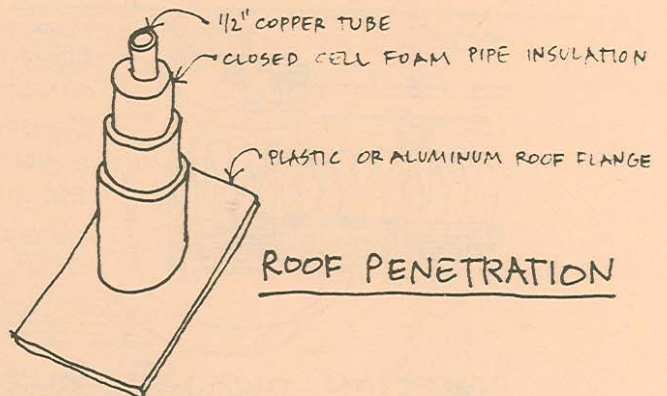 1/2" COPPER TUBE
CLOSED CELL FOAM PIPE INSULATION
PLASTIC OR ALUMINUM ROOF FLANGE
ROOF PENETRATION